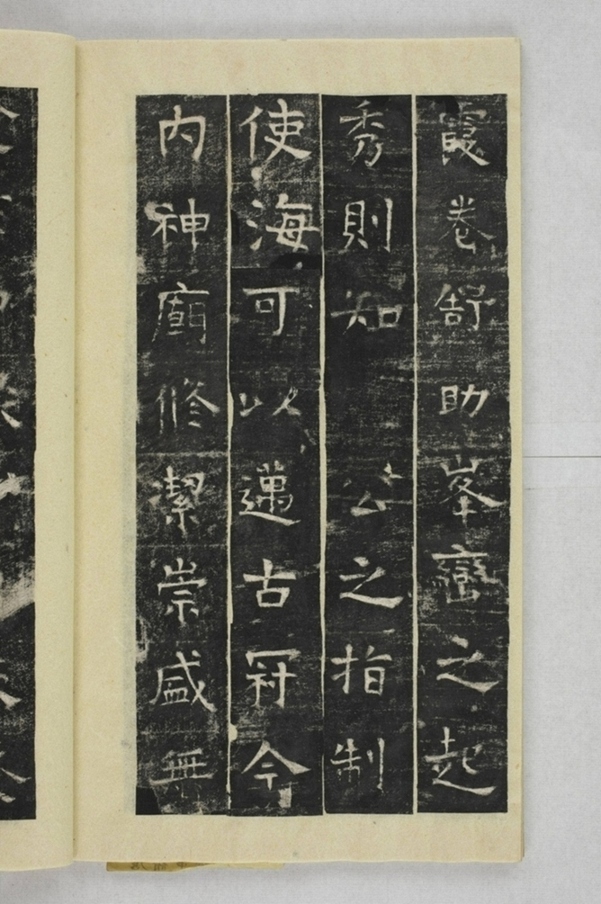 霞卷舒助峯巒之起
秀則知公之指制
使海可以邁古冠今
内神廟修潔崇盛無